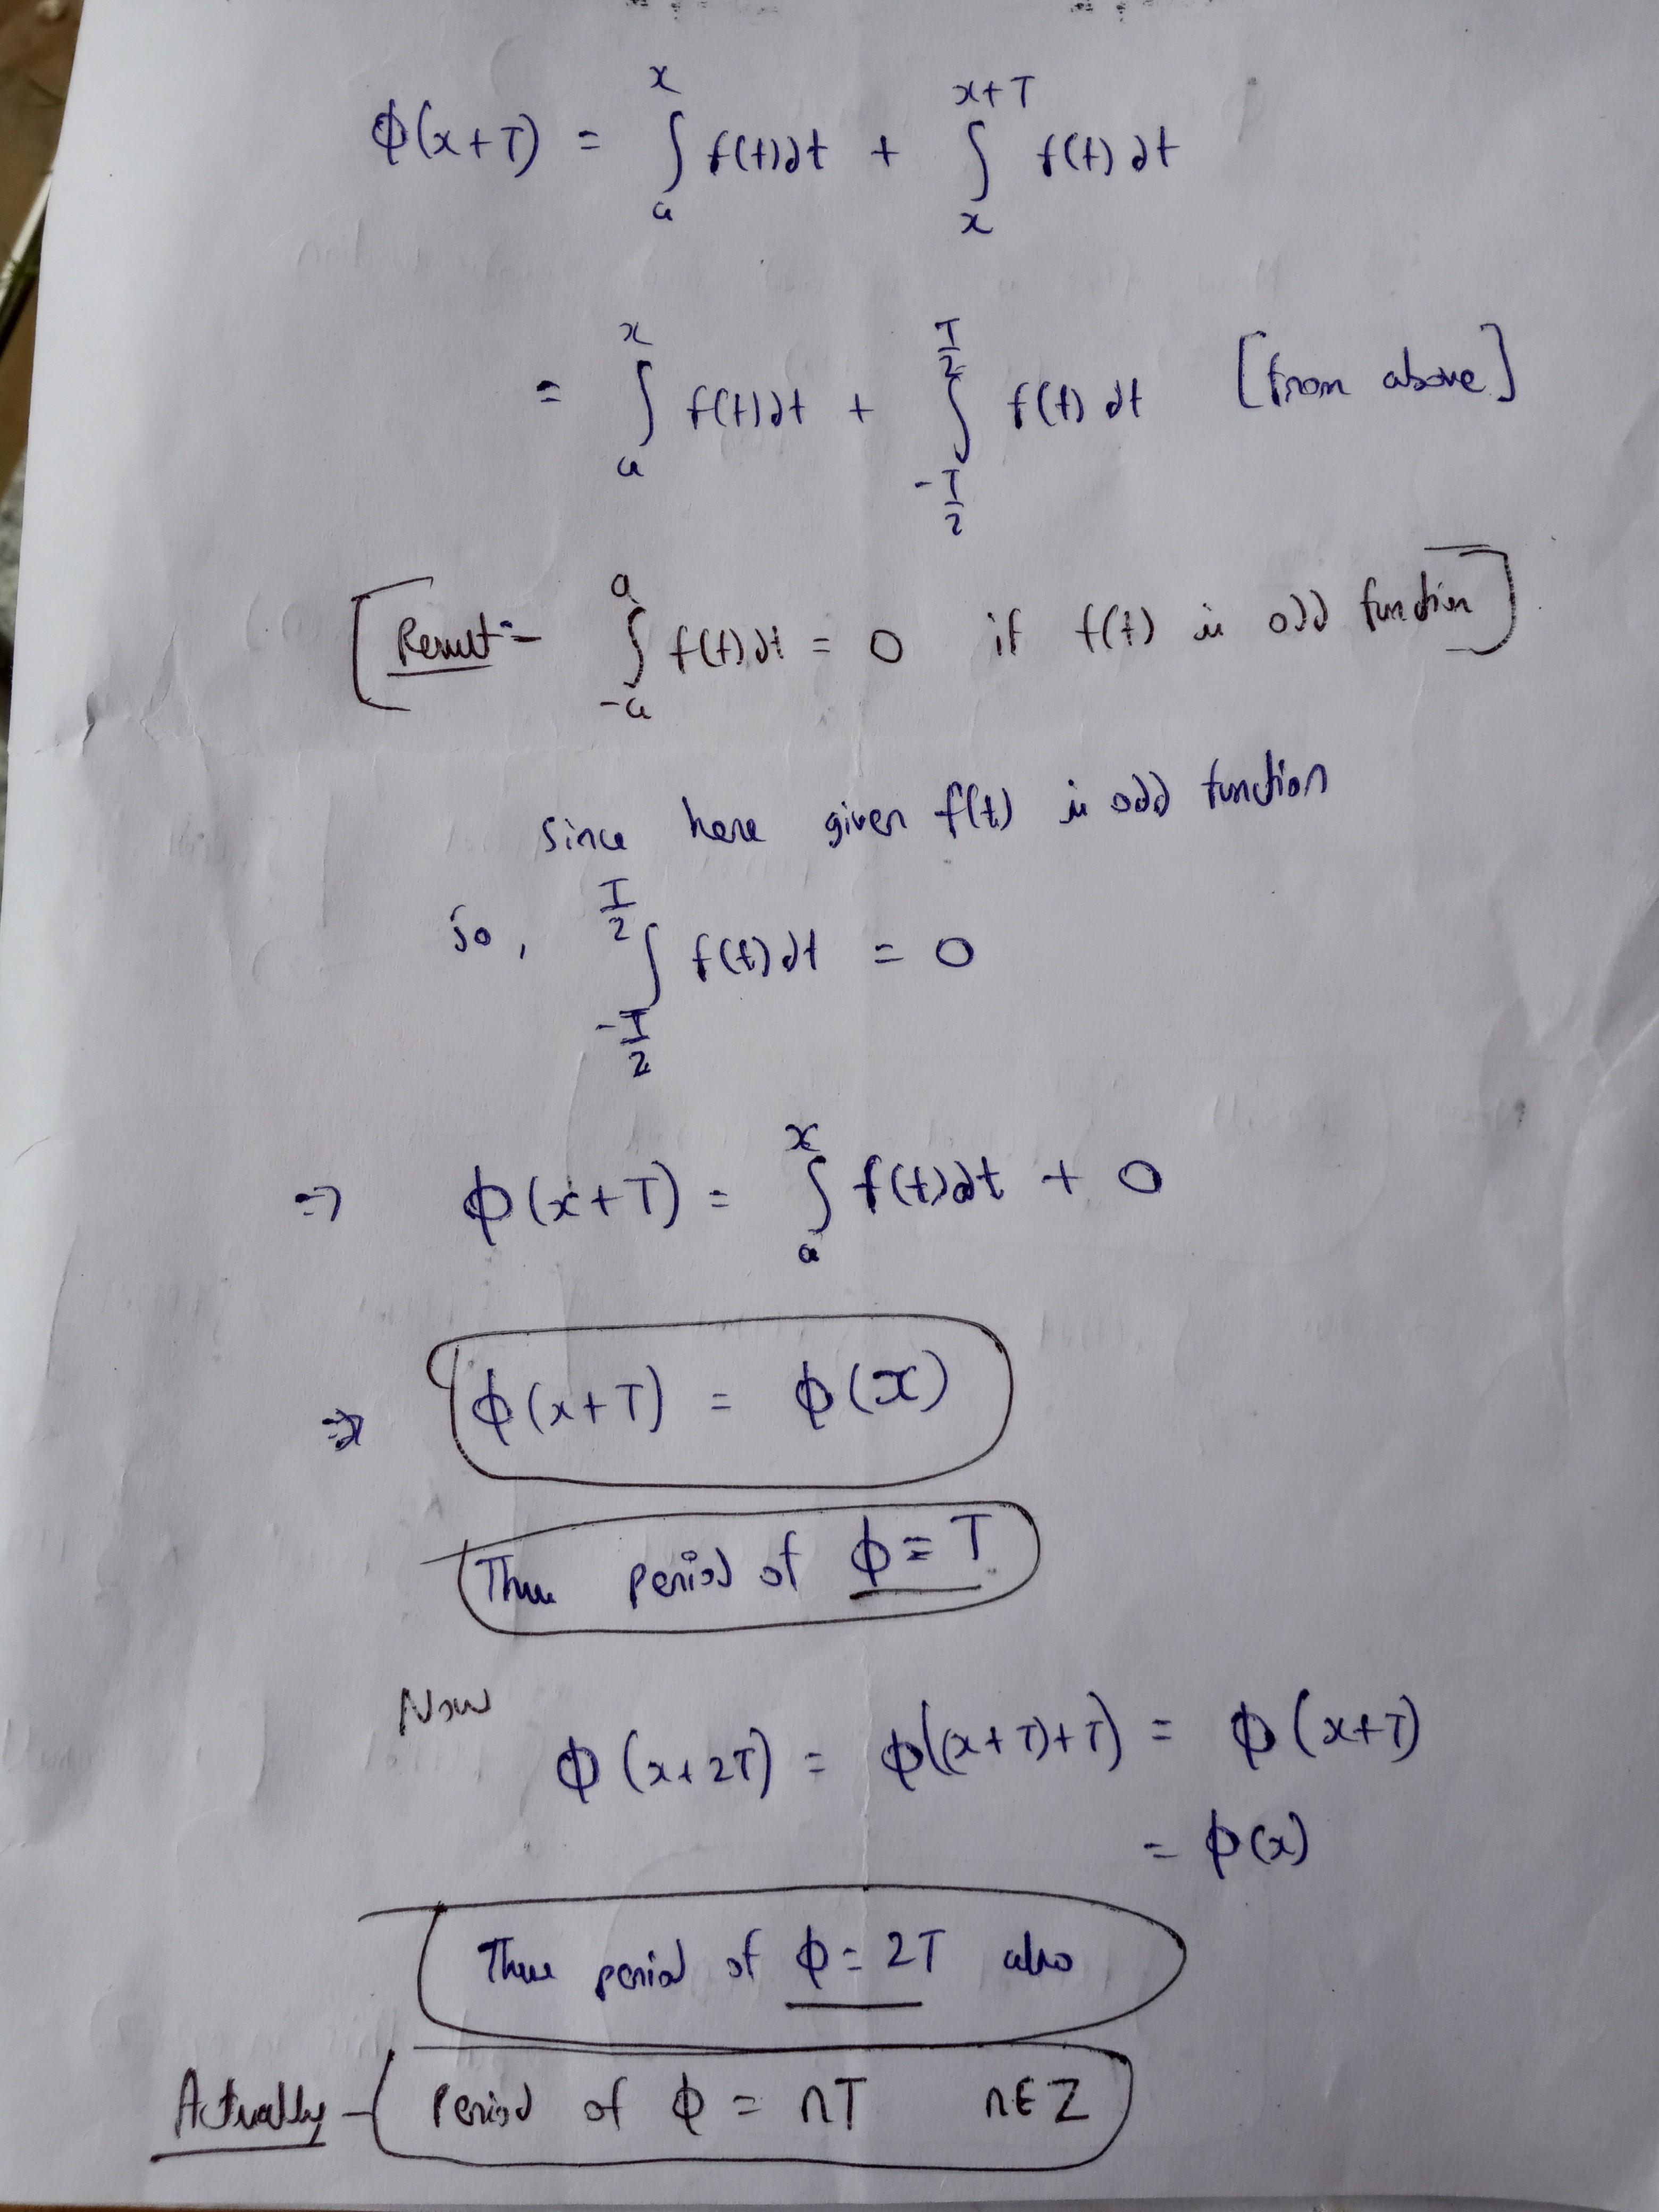 ϕ(x+T) = ∫_a^x f(t)dt + ∫_x^{x+T} f(t) dt
= ∫_a^x f(t)dt + ∫_{-T/2}^{T/2} f(t) dt [from above]
[Result:- ∫_{-a}^a f(t)dt = 0 if f(t) is odd function]
since here given f(t) is odd function
So, ∫_{-T/2}^{T/2} f(t)dt = 0
=> ϕ(x+T) = ∫_a^x f(t)dt + 0
=> ϕ(x+T) = ϕ(x)
Thus period of ϕ = T
Now
ϕ(x+2T) = ϕ((x+T)+T) = ϕ(x+T)
= ϕ(x)
Thus period of ϕ = 2T also
Actually - Period of ϕ = nT n∈Z